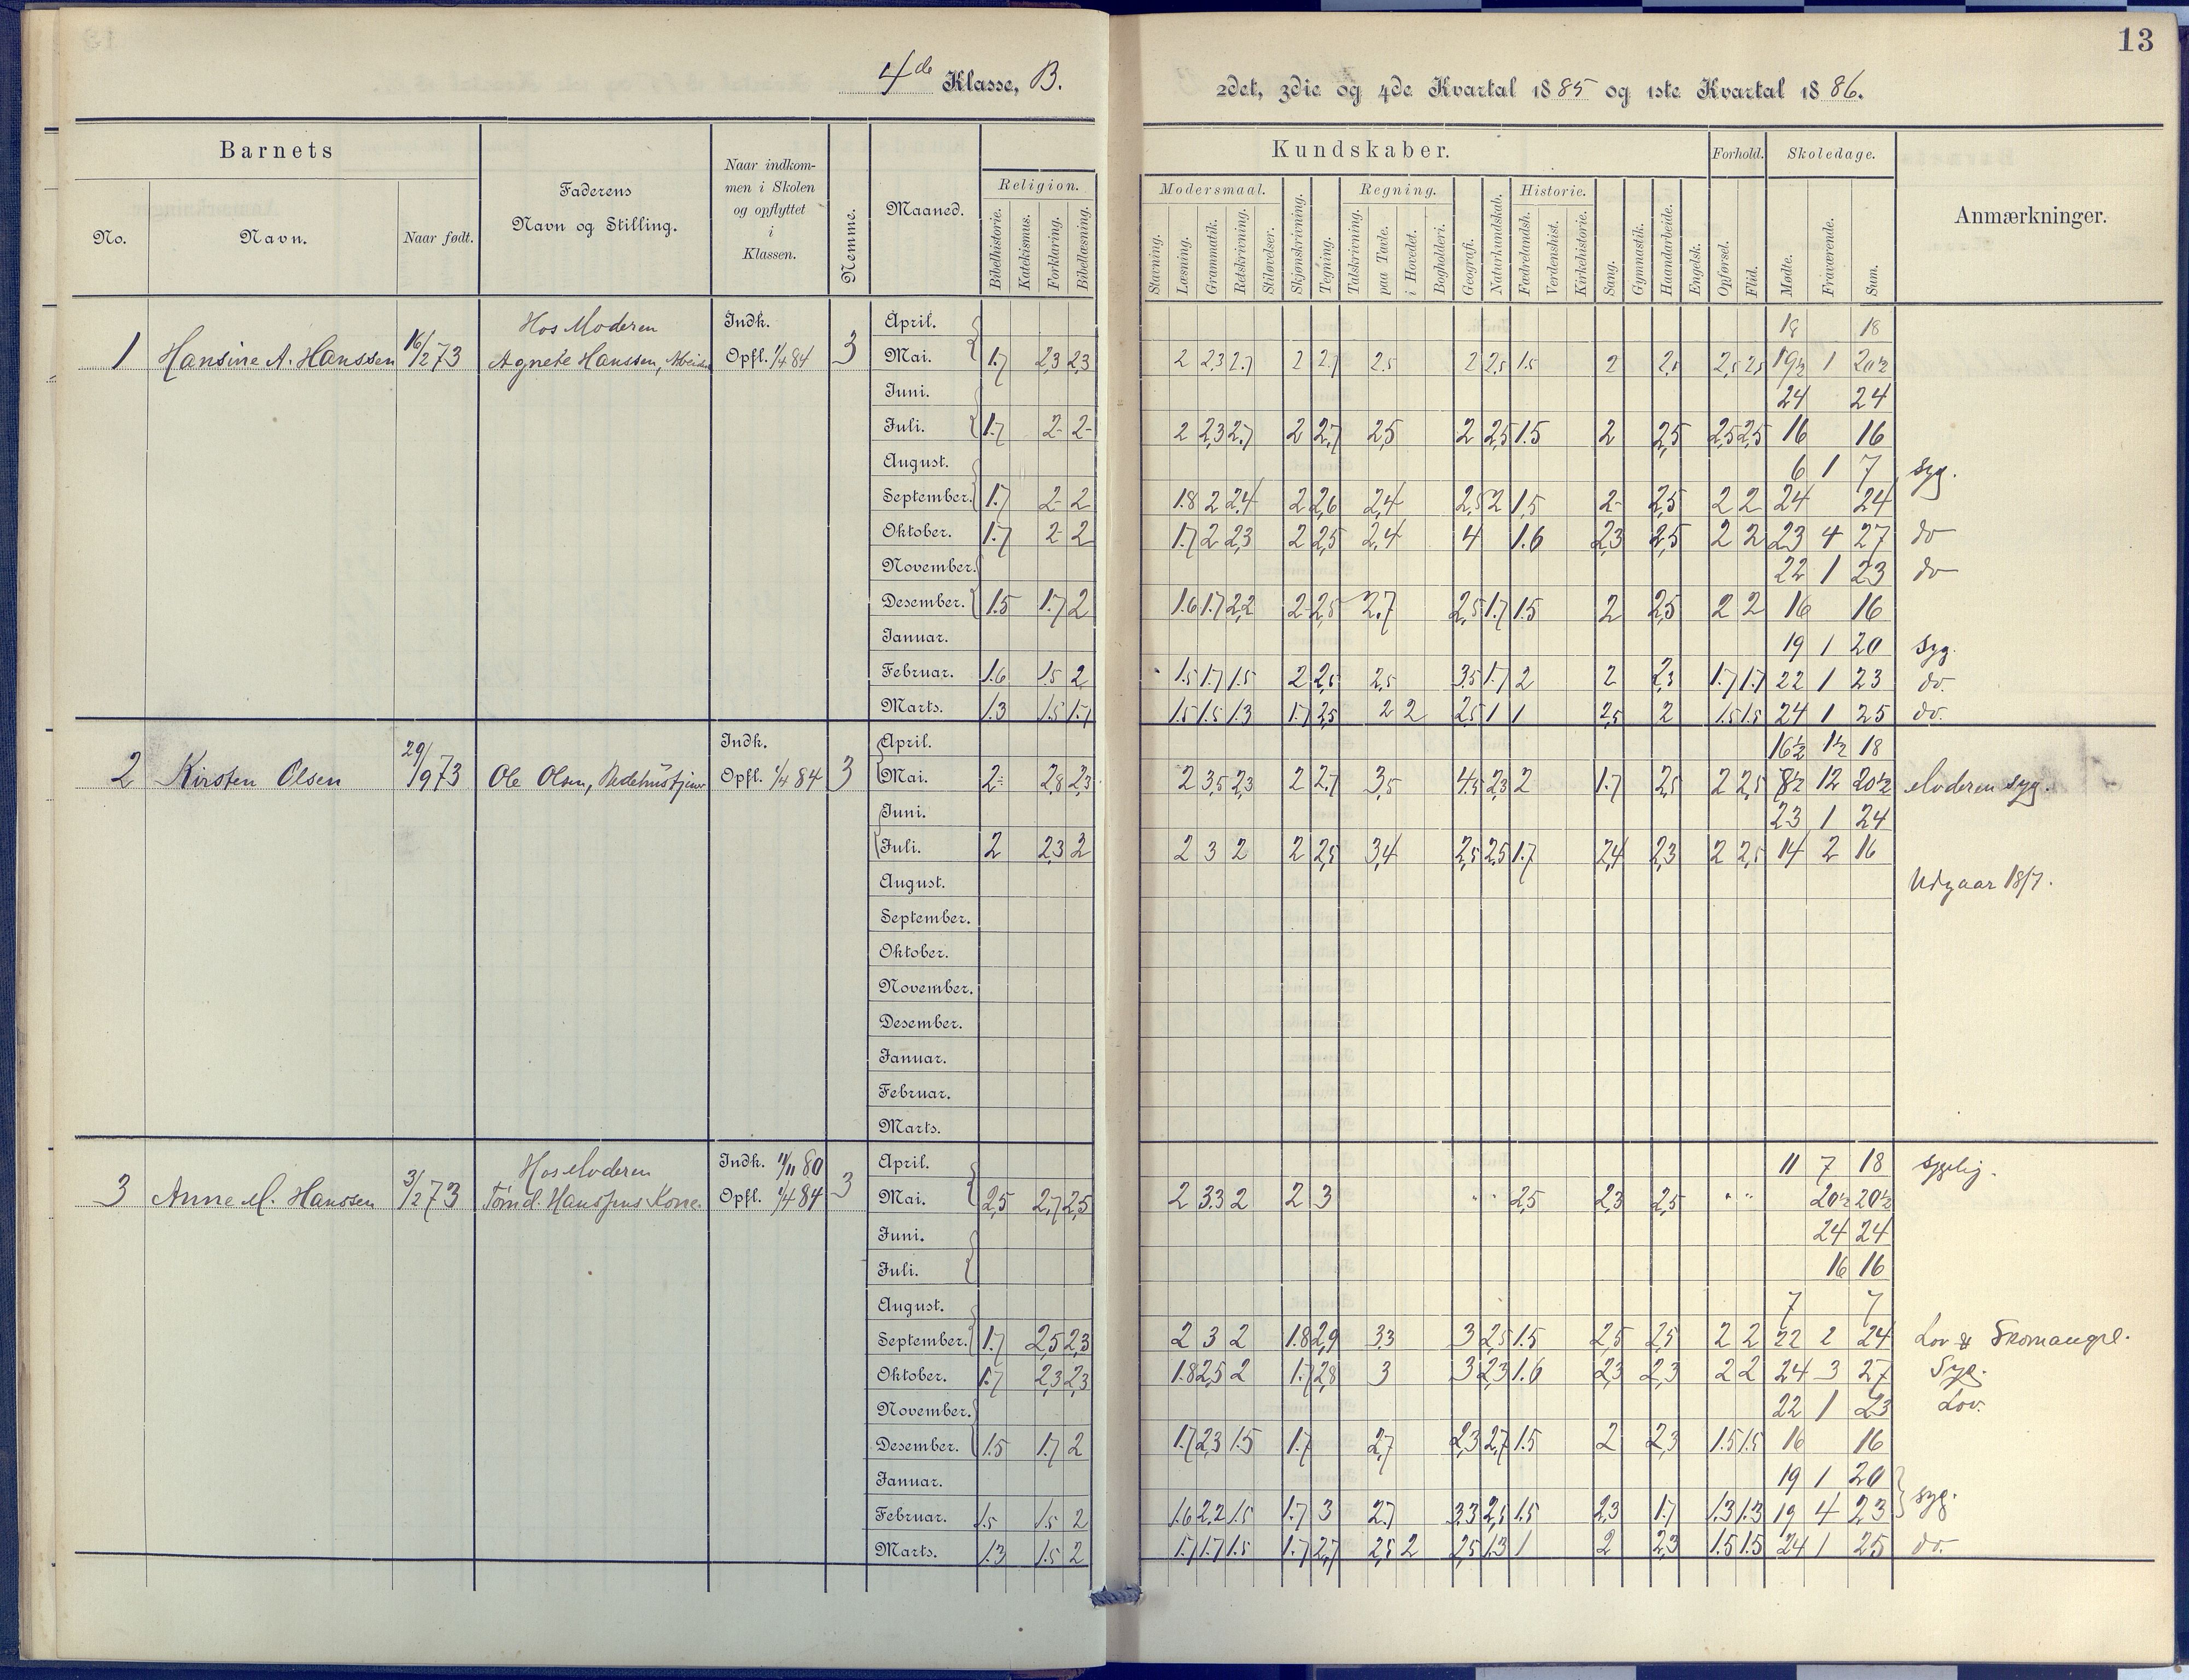 13
4de Klasse, B.
2det, 3die og 4de Kvartal 1885 og 1ste Kvartal 1886.
Barnets
No.
Navn.
Naar født.
Faderens
Navn og Stilling.
Naar indkom-
men i Skolen
og opflyttet
i
Klassen.
Nemme.
Maaned.
Religion.
Bibelhistorie.
Katekismus.
Forklaring.
Bibellæsning.
Kundskaber.
Modersmaal.
Stavning.
Læsning.
Grammatik.
Retskrivning.
Stiløvelser.
Skjønskrivning.
Tegning.
Regning.
Talskrivning.
paa Tavle.
i Hovedet.
Bogholderi.
Geografi.
Naturkundskab.
Historie.
Fædrelandsh.
Verdenshist.
Kirkehistorie.
Sang.
Gymnastik.
Haandarbeide.
Engelsk.
Forhold.
Opførsel.
Flid.
Skoledage.
Mødte.
Fraværende.
Sum.
Anmærkninger.
1 Hansine A. Hanssen 16/2 73 Hos Moderen Agnete Hanssen, Indk. Opfl. 1/4 84 3
April. 18 18
Mai. 1.7 2,3 2,3 2 2,3 2.7 2 2.7 2.5 2 2,5 1.5 2 2,5 2,5 2,5 19½ 1 20½
Juni. 24 24
Juli. 1.7 2 2 2 2,3 2.7 2 2,7 2,5 2 2,5 1.5 2 2,5 2,5 2,5 16 16
August. 6 1 7 syg.
September. 1.7 2 2 1.8 2 2,4 2 2,6 2,4 2,5 2 1,5 2 2,5 2 2 24 24
Oktober. 1.7 2 2 1.7 2 2,3 2 2,5 2,4 4 1.6 2,3 2,5 2 2 23 4 27 do
November. 22 1 23 do
Desember. 1.5 1.7 2 1.6 1.7 2,2 2 2,5 2.7 2,5 1.7 1.5 2 2,5 2 2 16 16
Januar. 19 1 20 syg.
Februar. 1.6 1.5 2 1.5 1.7 1.5 2 2,5 2,5 3,5 1.7 2 2 2,3 1.7 1.7 22 1 23 do.
Marts. 1.3 1.5 1.7 1.5 1.5 1.3 1.7 2,5 2 2 2,5 1 1 2,5 2 1.5 1.5 24 1 25 do.
2 Kirsten Olsen 29/9 73 Ole Olsen, Indk. Opfl. 1/4 84 3
April. 16½ 1½ 18
Mai. 2 2,8 2,3 2 3,5 2,3 2 2.7 3,5 4,5 2,3 2 1.7 2,5 2 2,5 8½ 12 20½ Moderen syg.
Juni. 23 1 24
Juli. 2 2,3 2 2 3 2 2 2,5 3,4 2,5 2,5 1.7 2,4 2,3 2 2,5 14 2 16
August. Udgaar 18/7.
September.
Oktober.
November.
Desember.
Januar.
Februar.
Marts.
3 Anne M. Hanssen 3/2 73 Hos Moderen Indk. 11/11 80 Opfl. 1/4 84 3
April. 11 7 18 sygelig.
Mai. 2,5 2,7 2,5 2 3,3 2 2 3 " " 2,5 2,3 2,5 " " 20½ 20½
Juni. 24 24
Juli. 16 16
August. 7 7
September. 1.7 2,5 2,3 2 3 2 1.8 2,9 3,3 3 2,5 1.5 2,5 2,5 2 2 22 2 24 Lov & Skomangel.
Oktober. 1.7 2,3 2,3 1.8 2,5 2 1.7 2,8 3 3 2,3 1.6 2,3 2,3 2 2 24 3 27 Syg.
November. 22 1 23 Lov.
Desember. 1.5 1.7 2 1.7 2,3 1.5 1.7 2,7 2,3 2,7 1.5 2 2,3 1.5 1.5 16 16
Januar. 19 1 20
Februar. 1.5 1.5 2 1.6 2,2 1.5 1.7 3 2.7 3,3 2,5 1.5 2,3 1.7 1.3 1.3 19 4 23 syg.
Marts. 1.3 1.5 2 1.7 1.7 1.5 1.7 2,7 2,5 2 2,5 1.3 1 2 2,3 1.5 1.5 24 1 25 do.